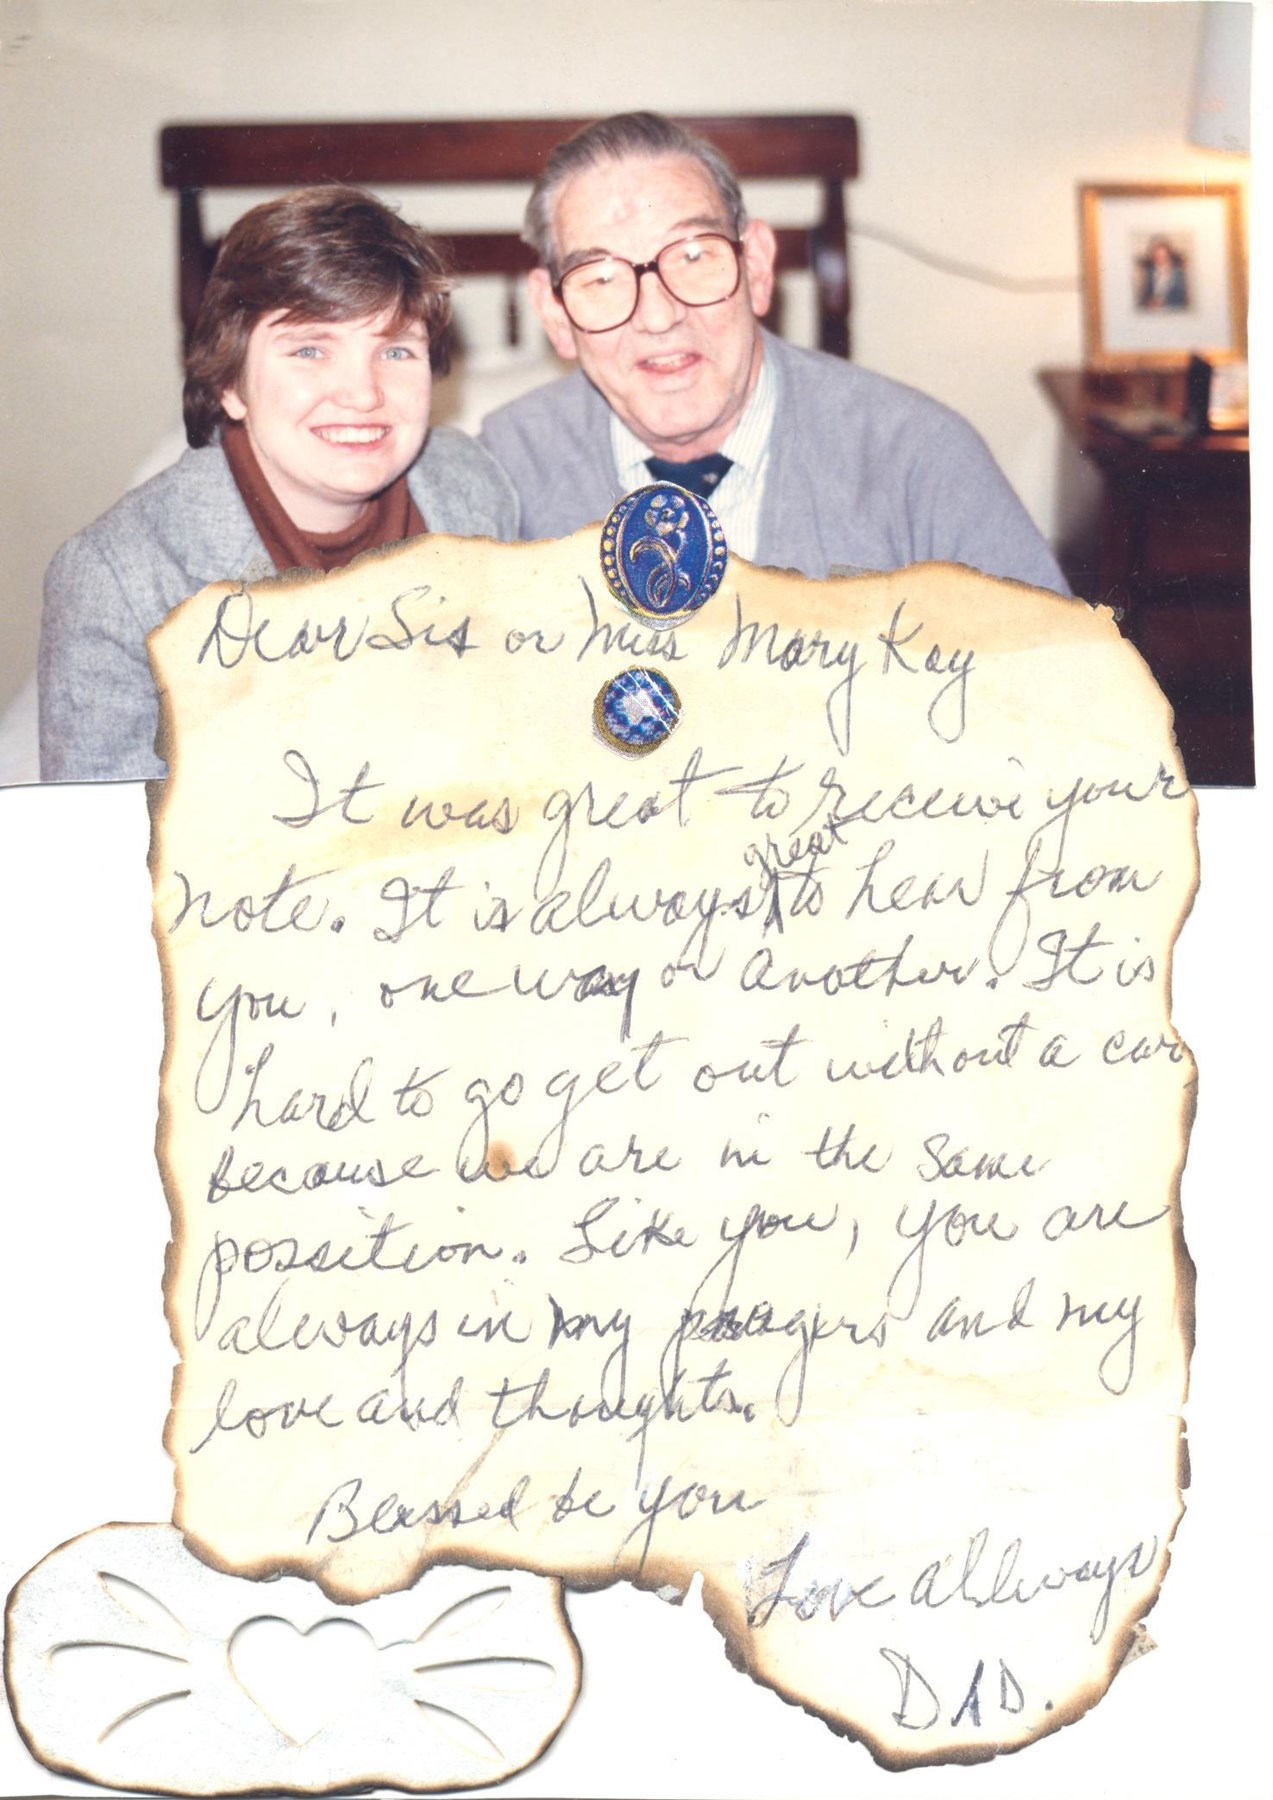 Dear Sis or Miss Mary Kay
It was great to receive your
note. It is always great to hear from
you, one way or another. It is
hard to go get out without a car
because we are in the same
possition. Like you, you are
always in my prayers and my
love and thoughts.
Blessed be you
Love allways
DAD.